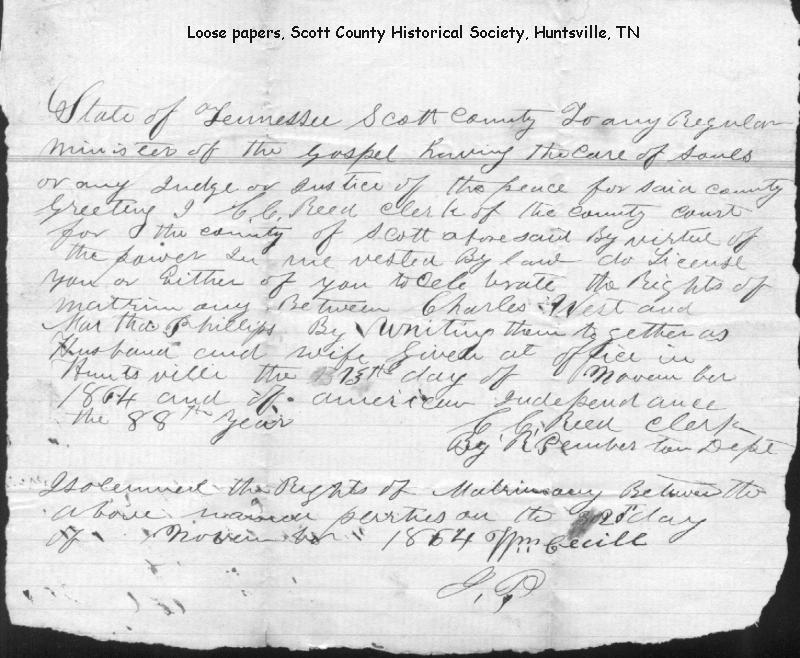 Loose papers, Scott County Historical Society, Huntsville, TN
State of Tennessee Scott County To any Regular
minister of the Gospel having the care of souls
or any Judge or Justice of the peace for said county
Greeting I C.C. Reed clerk of the county court
for the county of Scott aforesaid By virtue of
the power In me vested By law do License
you or Either of you to Celebrate the Rights of
matrimony Between Charles West and
Martha Phillips By Uniting them together as
Husband and wife Given at office in
Huntsville the 13th day of Novem ber
1864 and of american Independance
the 88th year
C C. Reed clerk
By R Pember ton Dept
I solemned the Rights of Matrimony Between the
above named parties on the day
of Novem ber 1864 Wm Cecill
J. P.